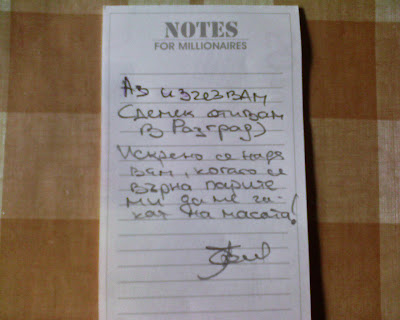 NOTES
FOR MILLIONAIRES
Аз изчезвам
(демек отивам
в Разград)
Искрено се надя
вам, когато се
върна парите
ми да ме ча-
кат на масата!